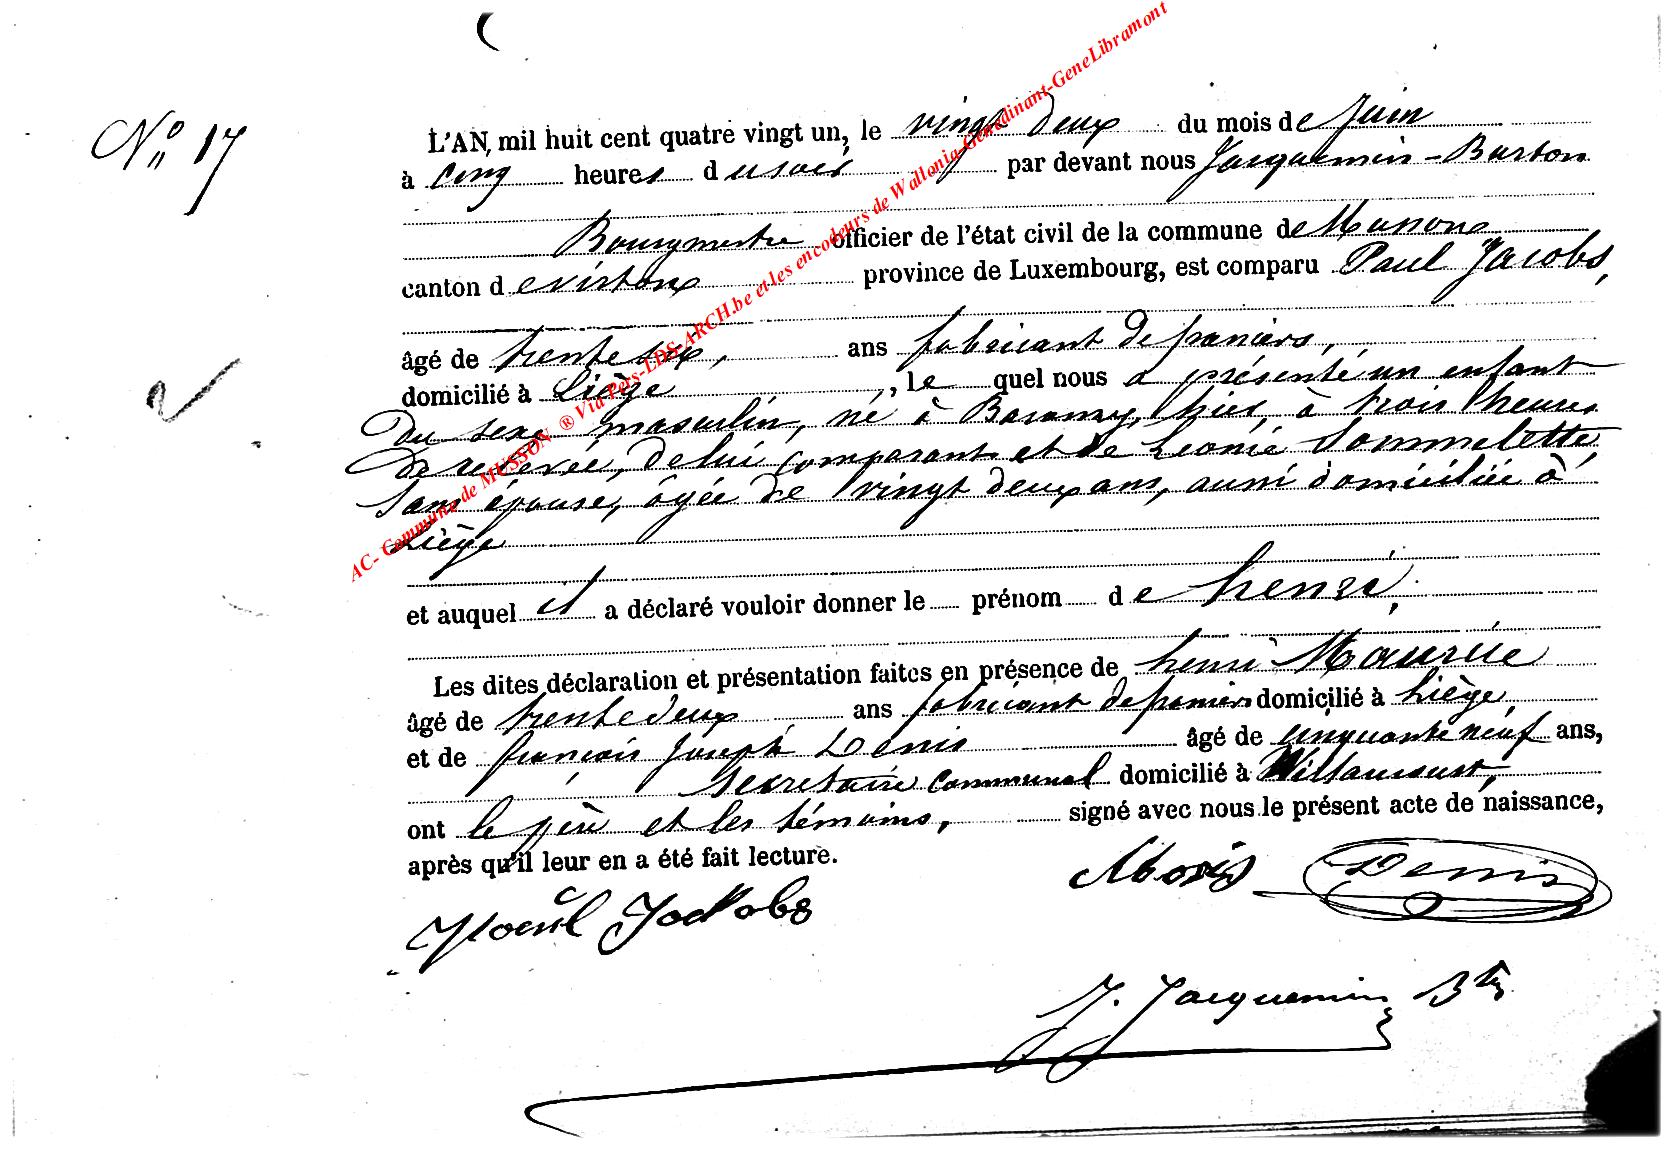 N° 17
L'AN mil huit cent quatre vingt un, le vingt deux du mois de Juin
à cinq heures du soir par devant nous Jacquemin-Burton
Bourgmestre officier de l'état civil de la commune de Musson
canton de virton province de Luxembourg, est comparu Paul Jacobs,
âgé de trente six, ans fabricant de paniers,
domicilié à Liège, le quel nous a présenté un enfant
du sexe masculin, né à Baranzy, hier, à trois heures
de relevée, de lui comparant et de Léonie Sommelette
son épouse, âgée de vingt deux ans, aussi domiciliée à
Liège
et auquel il a déclaré vouloir donner le prénom de henri.
Les dites déclaration et présentation faites en présence de henri Maurice
âgé de trente deux ans fabricant de paniers domicilié à Liège,
et de françois Joseph Denis âgé de cinquante neuf ans,
secrétaire communal domicilié à Willancourt,
ont le père et les témoins, signé avec nous le présent acte de naissance,
après qu'il leur en a été fait lecture.
Denis
Jacobs
J. Jacquemin Btn
AC- Commune de MUSSON ® Via Pers-LDS-ARCH.be et les encodeurs de Wallonia-Genedinant-GeneLibramont